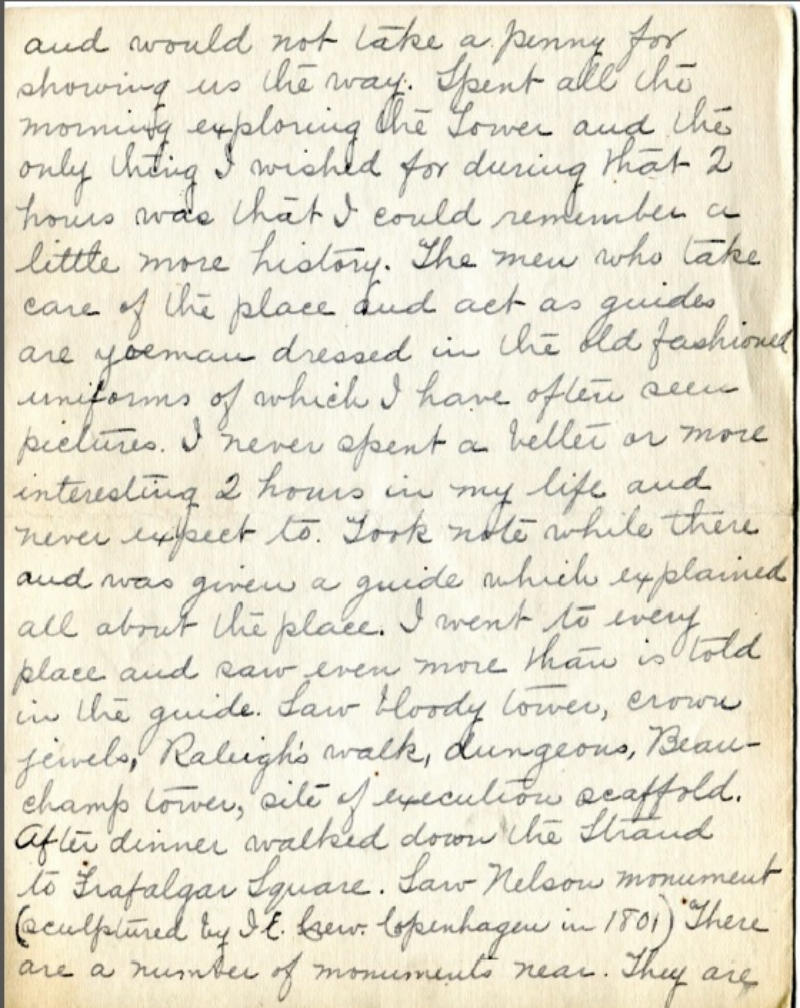 and would not take a penny for
showing us the way. Spent all the
morning exploring the Tower and the
only thing I wished for during that 2
hours was that I could remember a
little more history. The men who take
care of the place and act as guides
are yoeman dressed in the old fashioned
uniforms of which I have often seen
pictures. I never spent a better or more
interesting 2 hours in my life and
never expect to. Took note while there
and was given a guide which explained
all about the place. I went to every
place and saw even more than is told
in the guide. Saw bloody tower, crown
jewels, Raleigh's walk, dungeons, Beau-
champ tower, site of execution scaffold.
After dinner walked down the Strand
to Trafalgar Square. Saw Nelson monument
(sculptured by J.E. Crew. Copenhagen in 1801) There
are a number of monuments near. They are